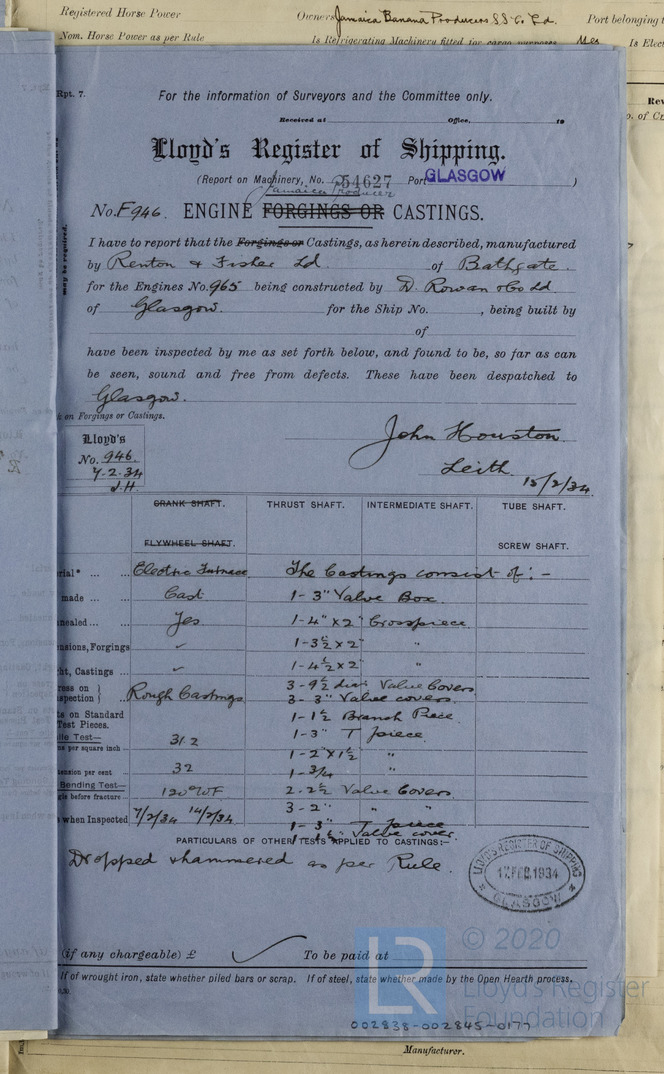 Registered Horse Power
Owners Jamaica Banana Producers SS Co Ld.
Port belonging t
Nom. Horse Power as per Rule
Is Refrigerating Machinery fitted for cargo purposes Yes
Is Elect
Rpt. 7.
For the information of Surveyors and the Committee only.
Received at Office, 19
Lloyd's Register of Shipping.
(Report on Machinery, No. 54627 Port GLASGOW)
Jamaica Producer
No. F946. ENGINE FORGINGS OR CASTINGS.
I have to report that the Forgings or Castings, as herein described, manufactured
by Renton & Fisher Ld. of Bathgate.
for the Engines No. 965 being constructed by D. Rowan & Co Ld
of Glasgow. for the Ship No. , being built by
of
have been inspected by me as set forth below, and found to be, so far as can
be seen, sound and free from defects. These have been despatched to
Glasgow.
on Forgings or Castings.
Lloyd's
No. 946
7.2.34
J.H.
John Houston.
Leith 15/2/34.
CRANK SHAFT. THRUST SHAFT. INTERMEDIATE SHAFT. TUBE SHAFT.
FLYWHEEL SHAFT. SCREW SHAFT.
rial* ... ... Electric Furnace The Castings consist of :-
made ... ... Cast 1 - 3" Valve Box.
nealed ... ... Yes 1 - 4" x 2" Crosspiece
nsions, Forgings ✓ 1 - 3½ x 2" "
ht, Castings ... ✓ 1 - 4½ x 2" "
ress on } 3 - 9½ dia Valve Covers
spection } Rough Castings 3 - 3" Valve covers.
ts on Standard 1 - 1½ Branch Piece.
Test Pieces.
ile Test— 31.2 1 - 3" T piece
ns per square inch 1 - 2" x 1½ "
tension per cent 32 1 - 3/4 "
Bending Test— 120° UF 2 - 2½ Valve Covers
gle before fracture 3 - 2" " "
when Inspected 7/2/34 14/2/34 1 - 3" T piece
Valve cover.
PARTICULARS OF OTHER TESTS APPLIED TO CASTINGS:—
Dropped & hammered as per Rule.
LLOYD'S REGISTER OF SHIPPING
17 FEB 1934
GLASGOW
(if any chargeable) £ To be paid at
If of wrought iron, state whether piled bars or scrap. If of steel, state whether made by the Open Hearth process,
© 2020
LR
Lloyd's Register
Foundation
002838-002845-0177
Manufacturer.